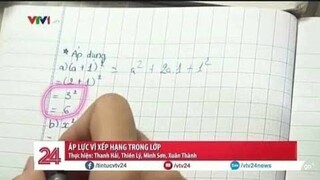 VTV1
* Áp dụng
a) (a + 1)² = a² + 2a.1 + 1²
= (2 + 1)²
= 3²
= 6
b) x²
24
ÁP LỰC VÌ XẾP HẠNG TRONG LỚP
Thực hiện: Thanh Hải, Thiên Lý, Minh Sơn, Xuân Thành
/tintucvtv24
/vtv24news